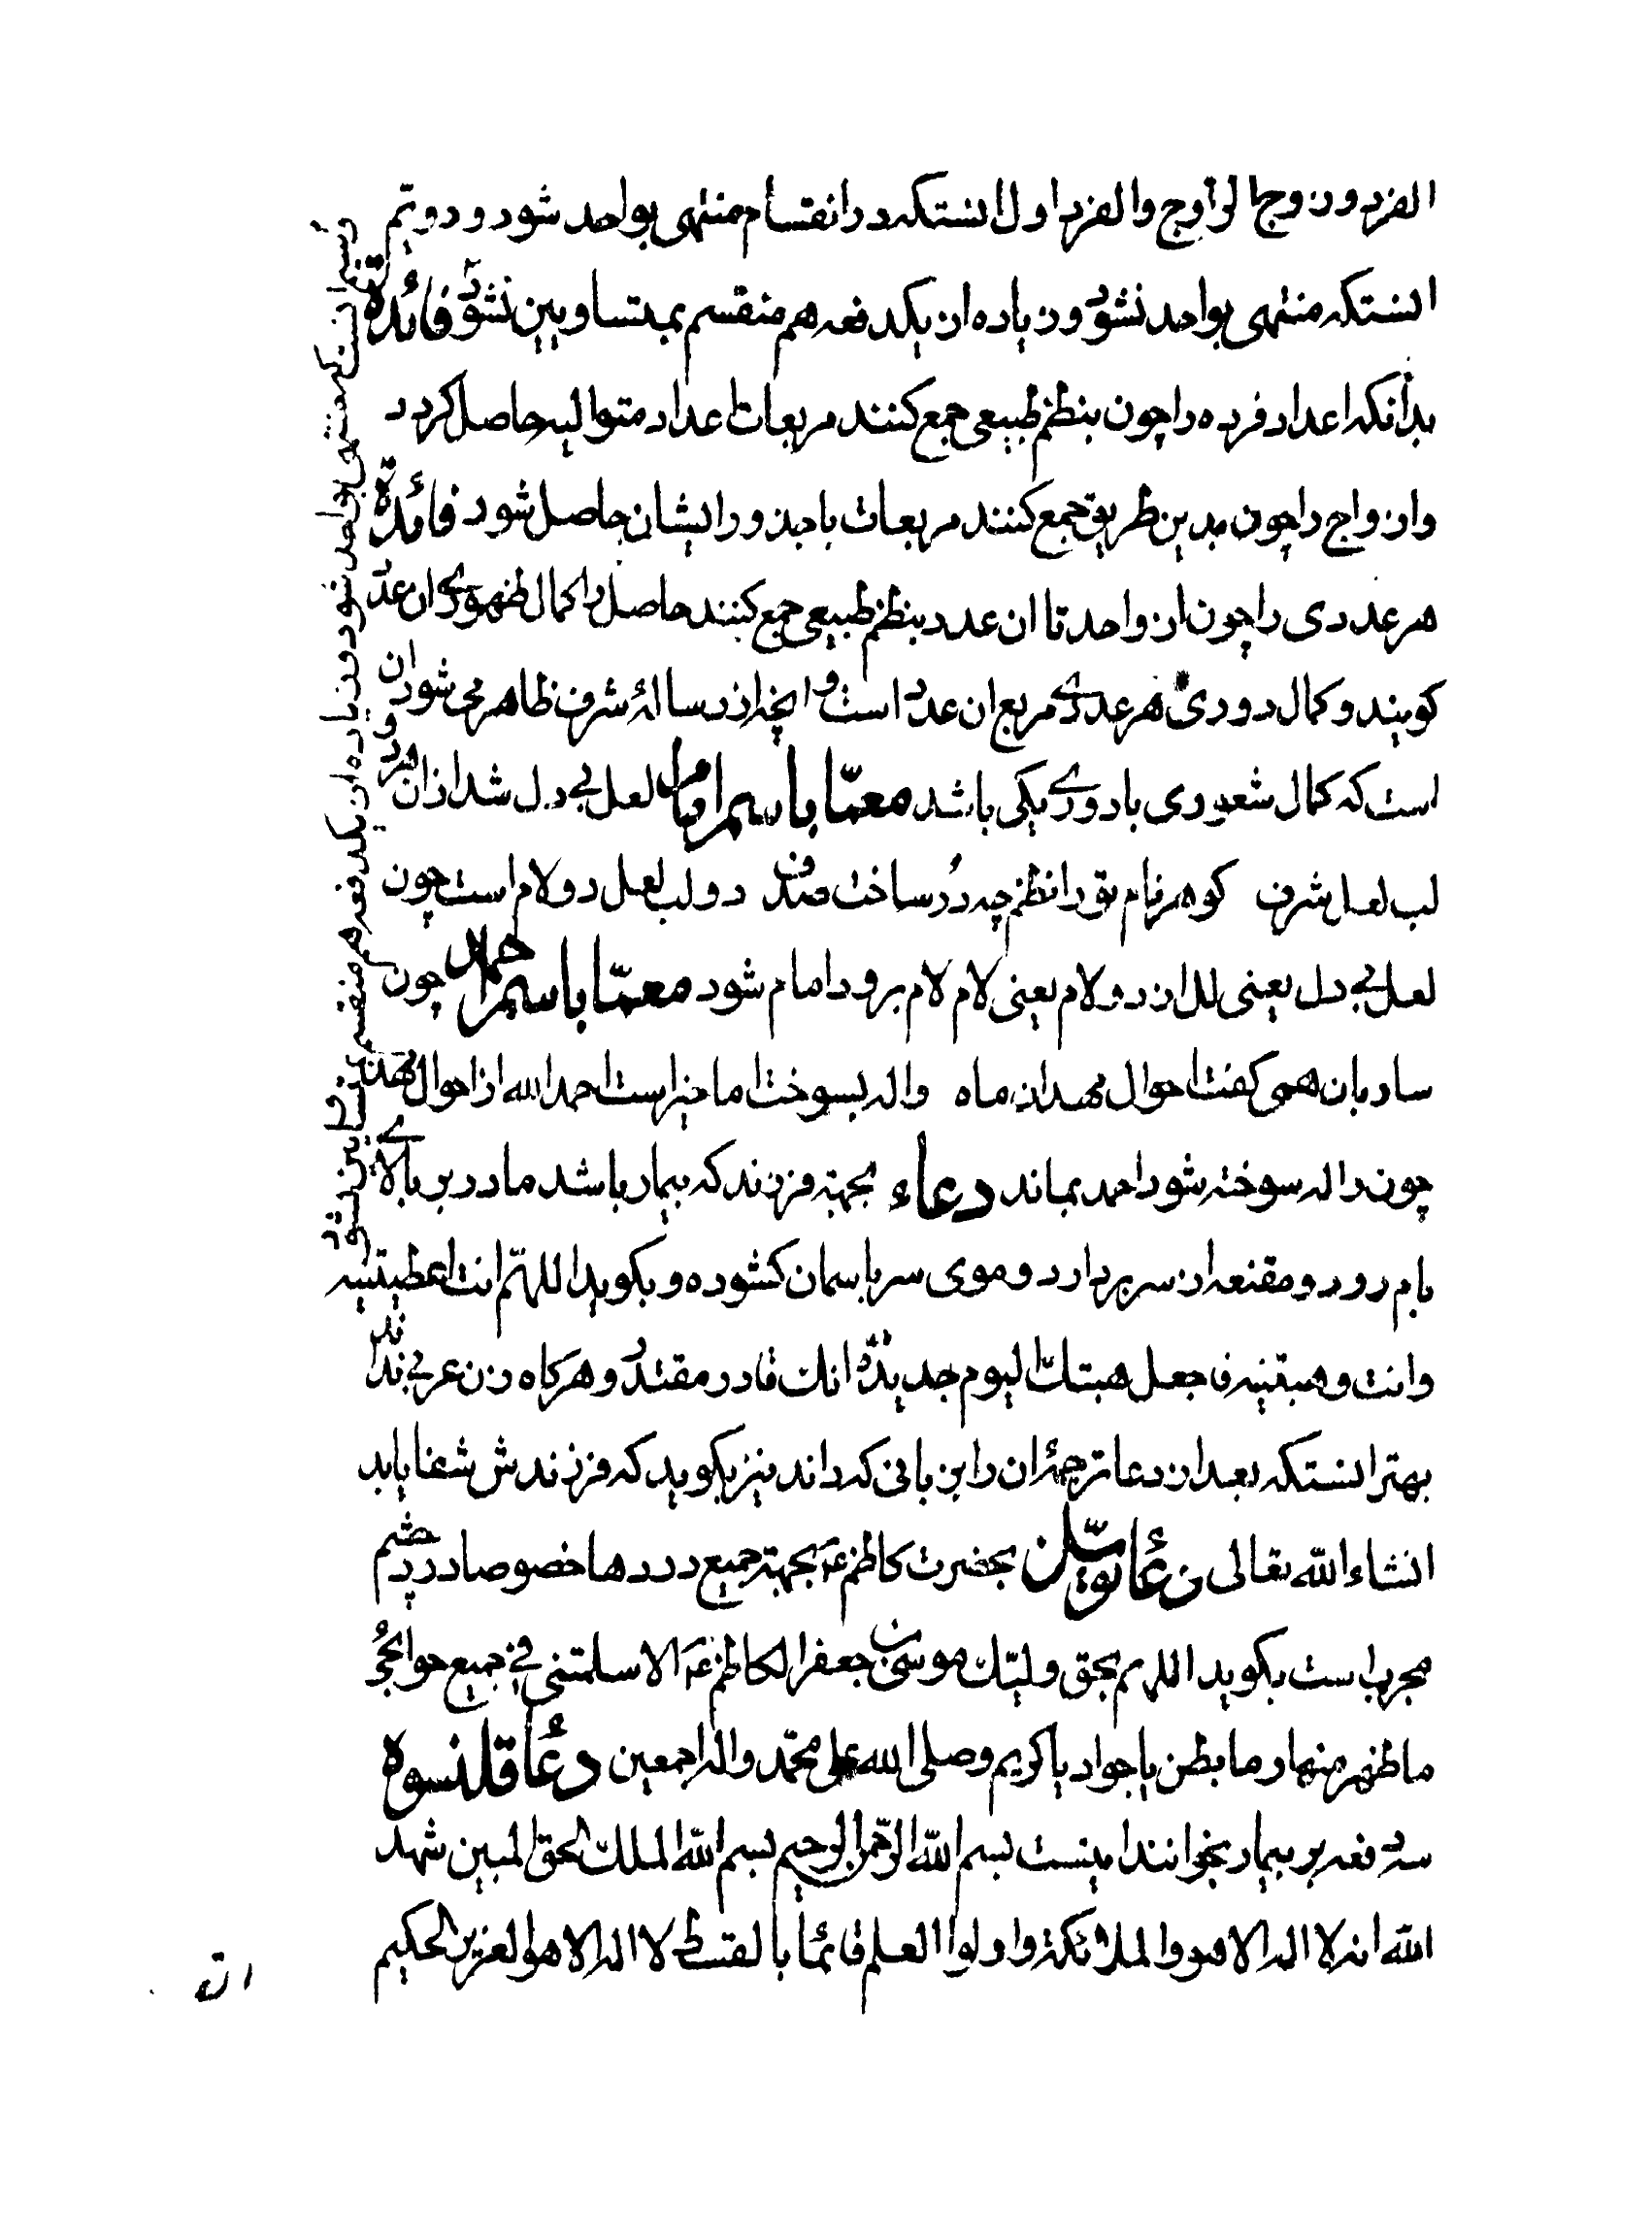 الفرد و زوج الزوج والفرد اول انستکه در انقسام منتهی بواحد شود و دویم
انستکه منتهی بواحد نشود و زیاده از یکدفعه هم منقسم بمتساویین نشود فائدة
بدانکه اعداد فرده را چون بنظم طبیعی جمع کنند مربعات اعداد متوالیه حاصل کردد
و ازواج را چون بدین طریق جمع کنند مربعات با جذور ایشان حاصل شود فائدة
هر عددی را چون از واحد تا ان عدد بنظم طبیعی جمع کنند حاصل را کمال ظهوری ان عدد
کویند و کمال دوری هر عددی مربع ان عدد است و انچه از رساله شرف ظاهر می شود ان
است که کمال شعوری با دوری یکی باشد معمّا باسم امام لعل بی دل شد از ان
لب لعل شرف کوهر نام تو را نظم چه در ساخت صدف دو لب لعل دو لام است چون
لعل بی دل یعنی لل از دو لام یعنی لام لام برود امام شود معمّا باسم احمد چون
ساربان همی کفت احوال مهد ان ماه واله بسوخت اما خبر است احمد الله از احوال مهد
چون واله سوخته شود احمد بماند دعاء بجهة فرزند که بیمار باشد مادر بر بالای
بام رود و مقنعه از سر بردارد و موی سر باسمان کشوده و بکوید اللهم انت اعطیتنیه
وانت وهبتنیه فاجعل هبتك الیوم جدیدة انك قادر مقتدر و هرکاه زن عربی نداند
بهتر انستکه بعد از دعا ترجمهٔ ان را بزبانی که داند نیز بکوید که فرزندش شفا یابد
انشاء الله تعالی دعا توسل بحضرت کاظم ع بجهة جمیع دردها خصوصا درد چشم
مجرب است بکوید اللهم بحق ولیّك موسی بن جعفر الکاظم ع الا سلمتنی فی جمیع جوارحی
ما ظهر منها و ما بطن یا جواد یا کریم وصلی الله علی محمّد واله اجمعین دعا قلنسوه
سه دفعه بر بیمار بخوانند اینست بسم الله الرحمن الرحیم بسم الله الملك الحق المبین شهد
الله انه لا اله الا هو والملائکة واولوا العلم قائما بالقسط لا اله الا هو العزیز الحکیم
انست که منتهی بواحد شود و زیاده از یکدفعه هم منقسم بمتساویین نشود
ان